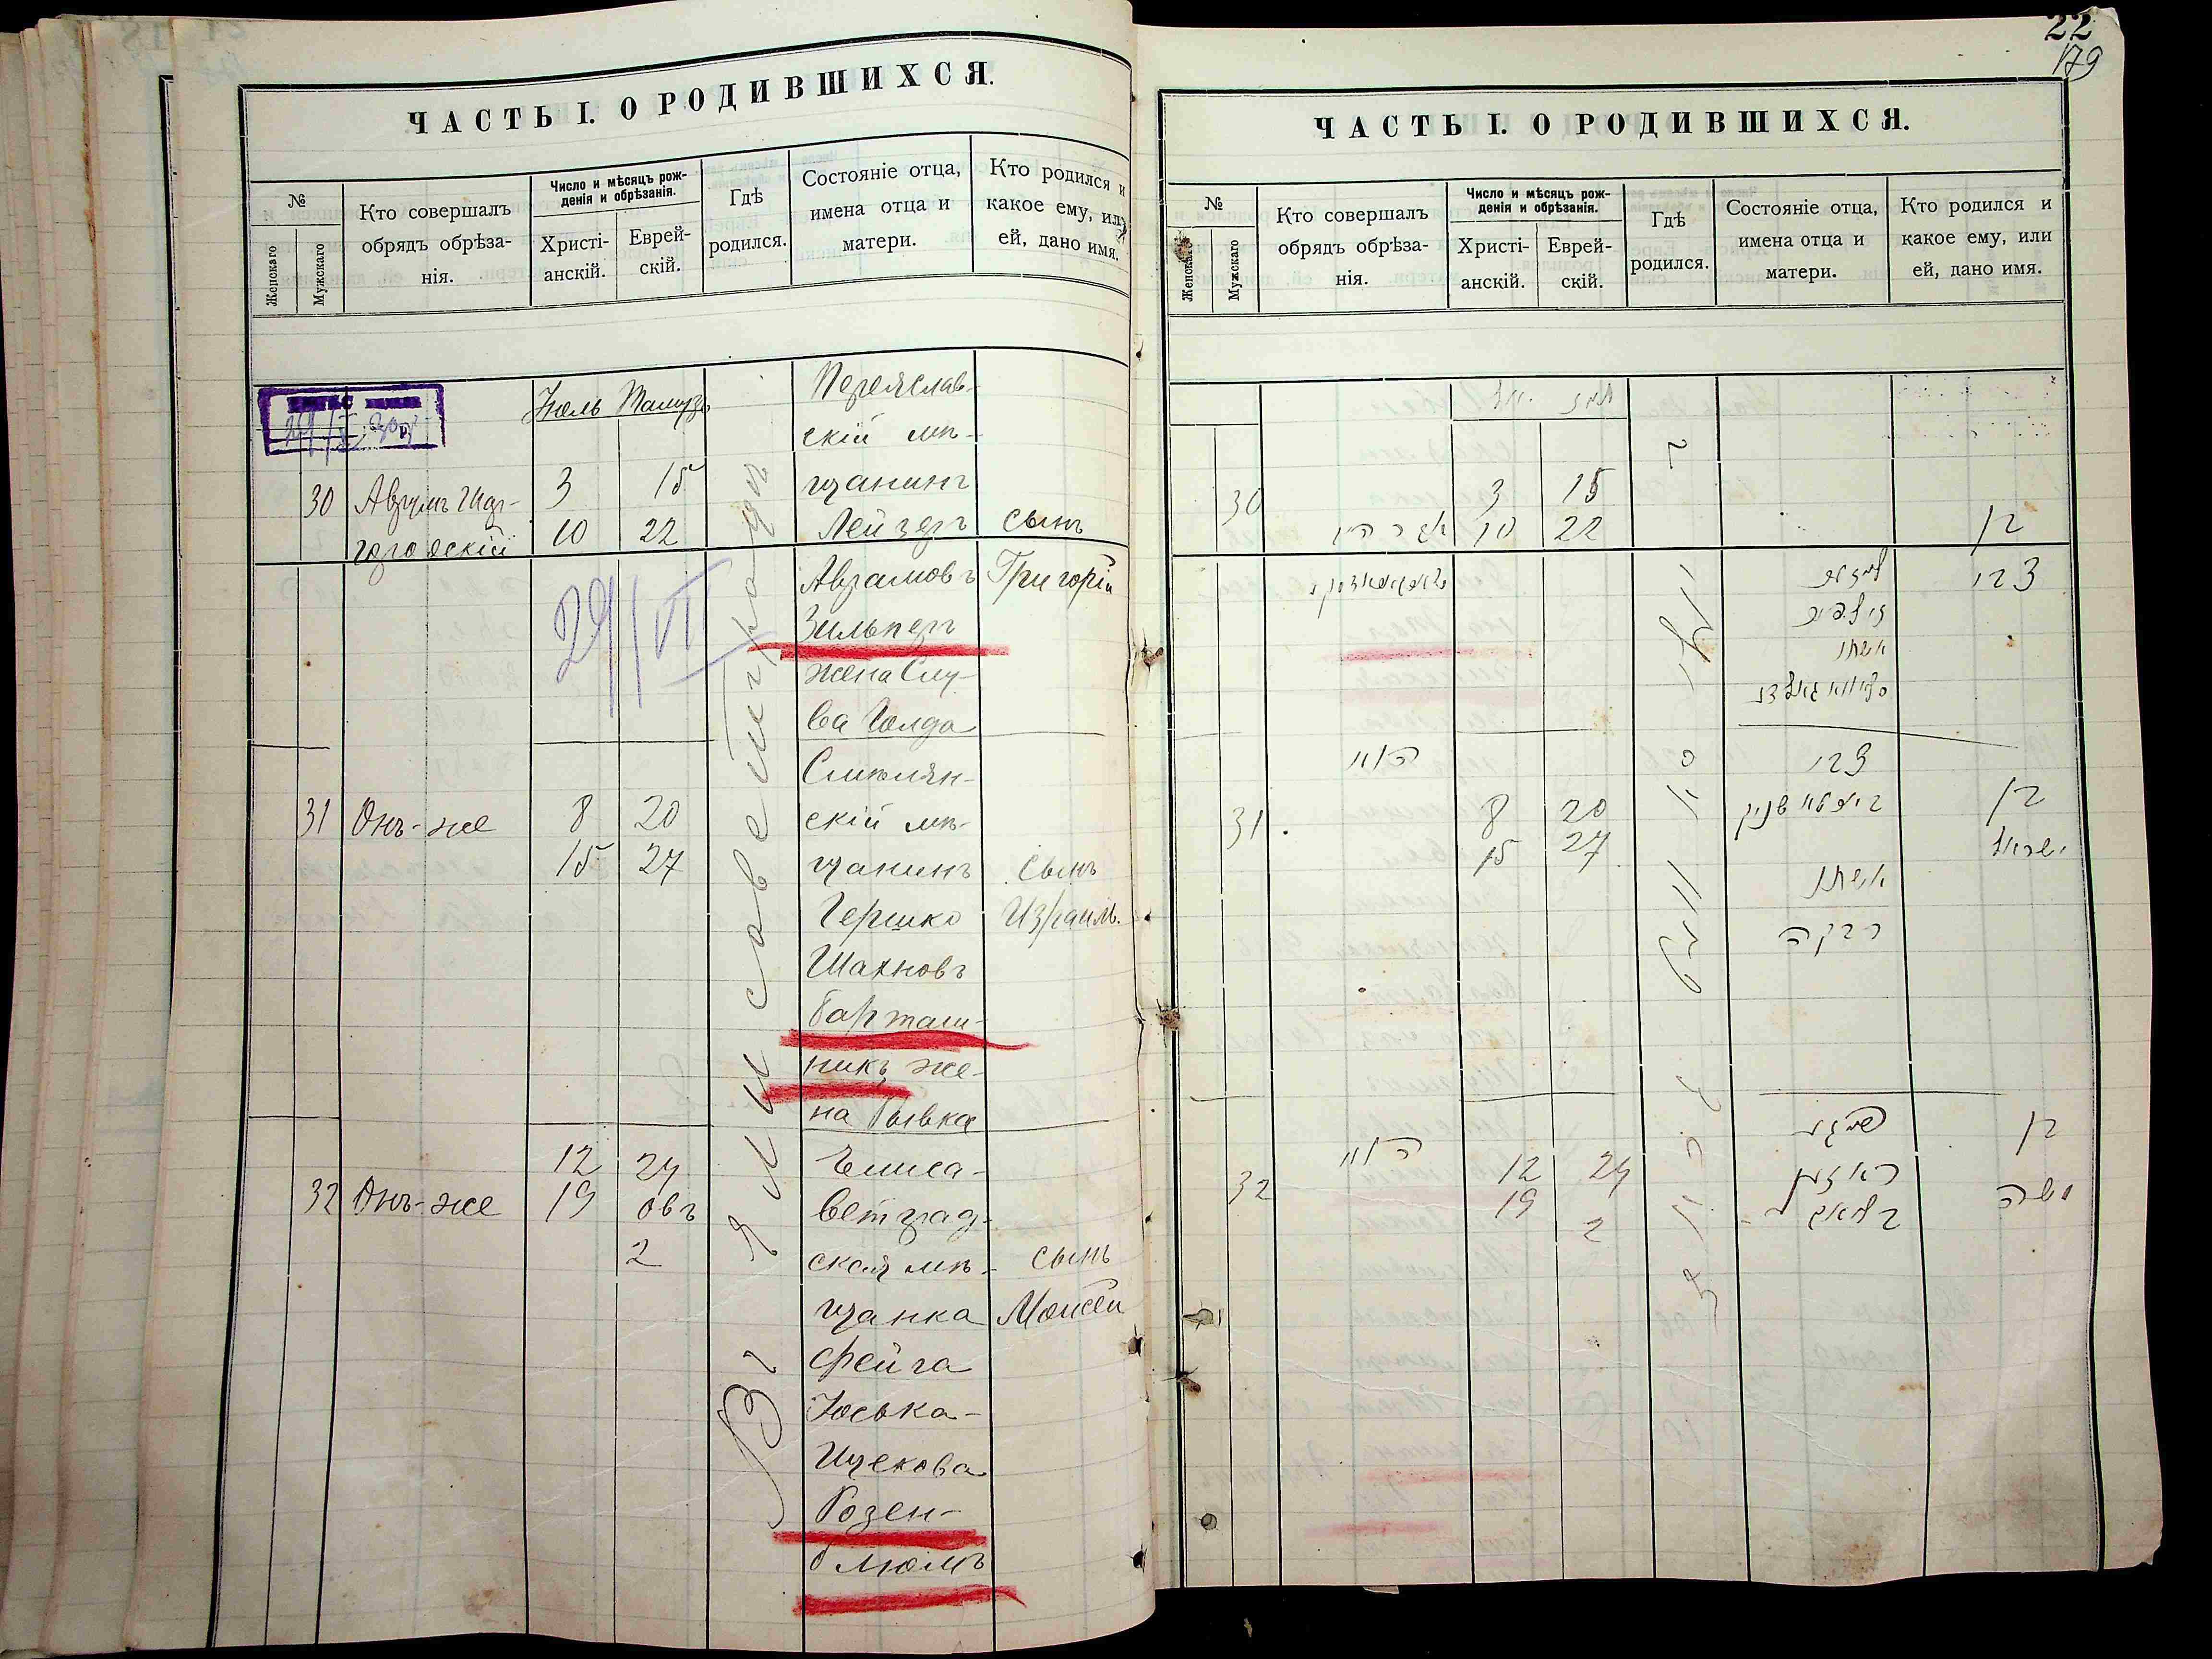 ЧАСТЬ I. О РОДИВШИХСЯ.
№
Женскаго
Мужскаго
Кто совершалъ
обрядъ обрѣза-
нія.
Число и мѣсяцъ рож-
денія и обрѣзанія.
Христі-
анскій.
Еврей-
скій.
Гдѣ
родился.
Состояніе отца,
имена отца и
матери.
Кто родился и
какое ему, или
ей, дано имя.
Июль Тамузъ
Въ Елисаветградѣ
30
3 15
10 22
Переяслав-
скій мѣ-
щанинъ
Лейзеръ
Аврамовъ
Зильперъ
жена Слу-
ва Голда
сынъ
Григорій
29/VII
31 Онъ-же
8 20
15 27
Смѣлян-
скій мѣ-
щанинъ
Гершко
Шахновъ
Барташ-
никъ же-
на Рывка
Сынъ
Израиль.
32 Онъ-же
12 24
19 овъ
2
Елиса-
ветград-
ская мѣ-
щанка
Фейга
Юська-
Ицекова
Розен-
блюмъ
сынъ
Моисей
22
179
ЧАСТЬ I. О РОДИВШИХСЯ.
№
Женскаго
Мужскаго
Кто совершалъ
обрядъ обрѣза-
нія.
Число и мѣсяцъ рож-
денія и обрѣзанія.
Христі-
анскій.
Еврей-
скій.
Гдѣ
родился.
Состояніе отца,
имена отца и
матери.
Кто родился и
какое ему, или
ей, дано имя.
יולי תמוז
30
3 15
10 22
בן
צבי
אשתו
31
הוא
8 20
15 27
צבי
אשתו
רבקה
בן
ישראל
32
הוא
12 24
19 2
פייגא
בן
משה